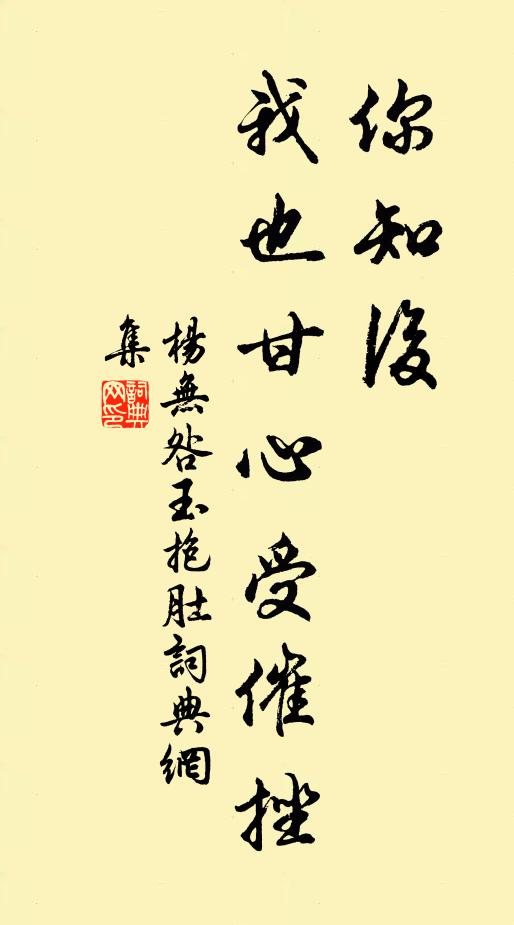 你知後
我也甘心受催挫
楊無咎玉抱肚詞典網
集
詞典
网印